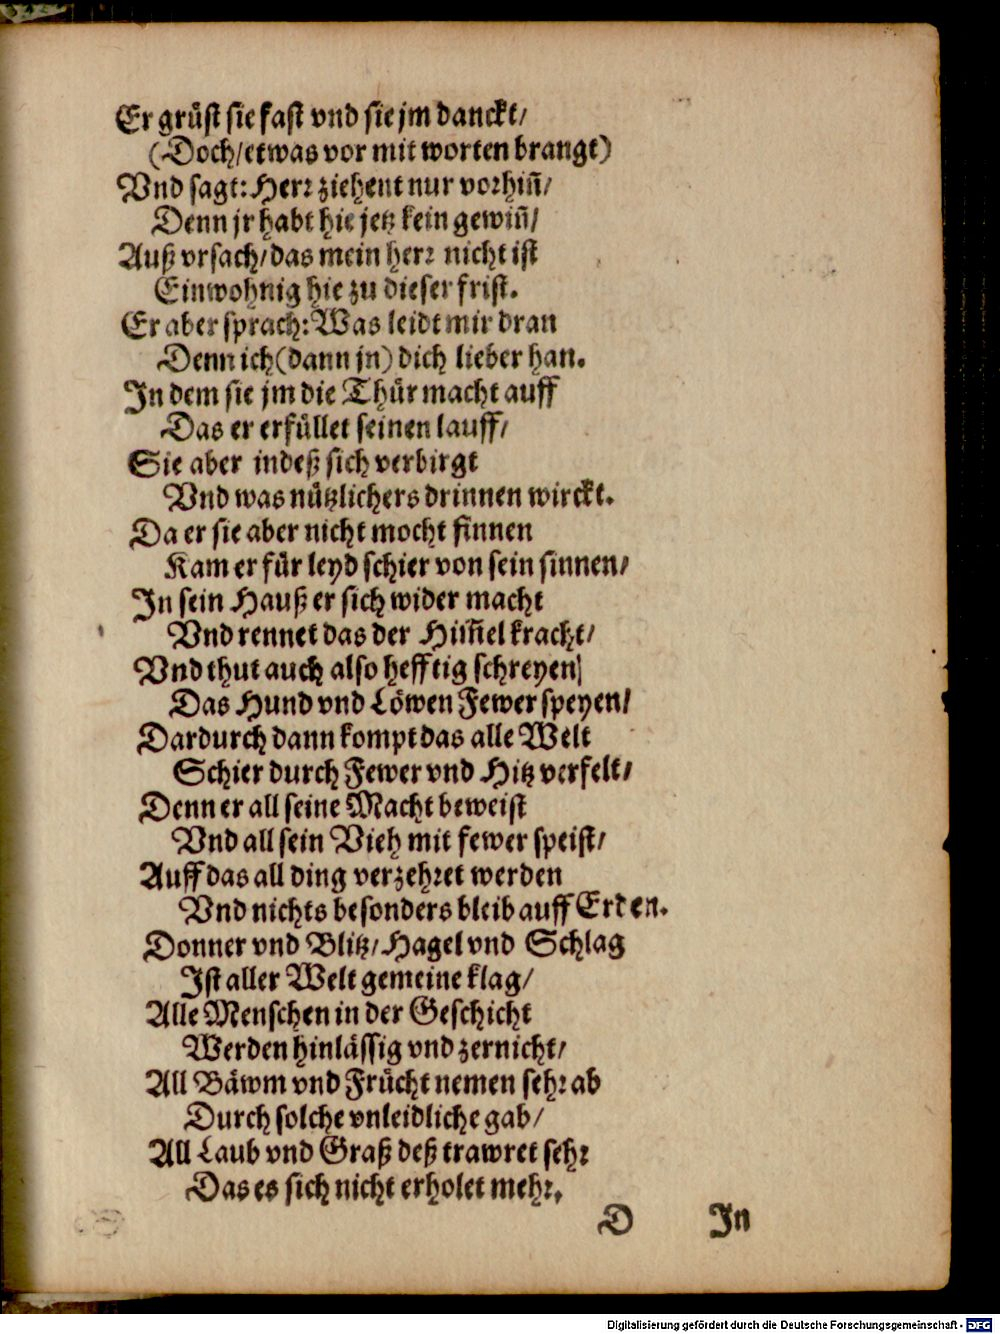 Er grüſt ſie faſt vnd ſie jm danckt/
(Doch/etwas vor mit worten brangt)
Vnd ſagt: Herr ziehent nur vorhin̄/
Denn jr habt hie jetz kein gewin̄/
Auß vrſach/das mein herr nicht iſt
Einwohnig hie zu dieſer friſt.
Er aber ſprach: Was leidt mir dran
Denn ich (dann jn) dich lieber han.
In dem ſie jm die Thür macht auff
Das er erfüllet ſeinen lauff/
Sie aber indeß ſich verbirgt
Vnd was nützlichers drinnen wirckt.
Da er ſie aber nicht mocht finnen
Kam er für leyd ſchier von ſein ſinnen/
In ſein Hauß er ſich wider macht
Vnd rennet das der Him̄el kracht/
Vnd thut auch alſo hefftig ſchreyen/
Das Hund vnd Löwen Fewer ſpeyen/
Dardurch dann kompt das alle Welt
Schier durch Fewer vnd Hitz verfelt/
Denn er all ſeine Macht beweiſt
Vnd all ſein Vieh mit fewer ſpeiſt/
Auff das all ding verzehret werden
Vnd nichts beſonders bleib auff Erden.
Donner vnd Blitz/Hagel vnd Schlag
Iſt aller Welt gemeine klag/
Alle Menſchen in der Geſchicht
Werden hinläſſig vnd zernicht/
All Bäwm vnd Frücht nemen ſehr ab
Durch ſolche vnleidliche gab/
All Laub vnd Graß deß trawret ſehr
Das es ſich nicht erholet mehr,
D In
Digitalisierung gefördert durch die Deutsche Forschungsgemeinschaft - DFG